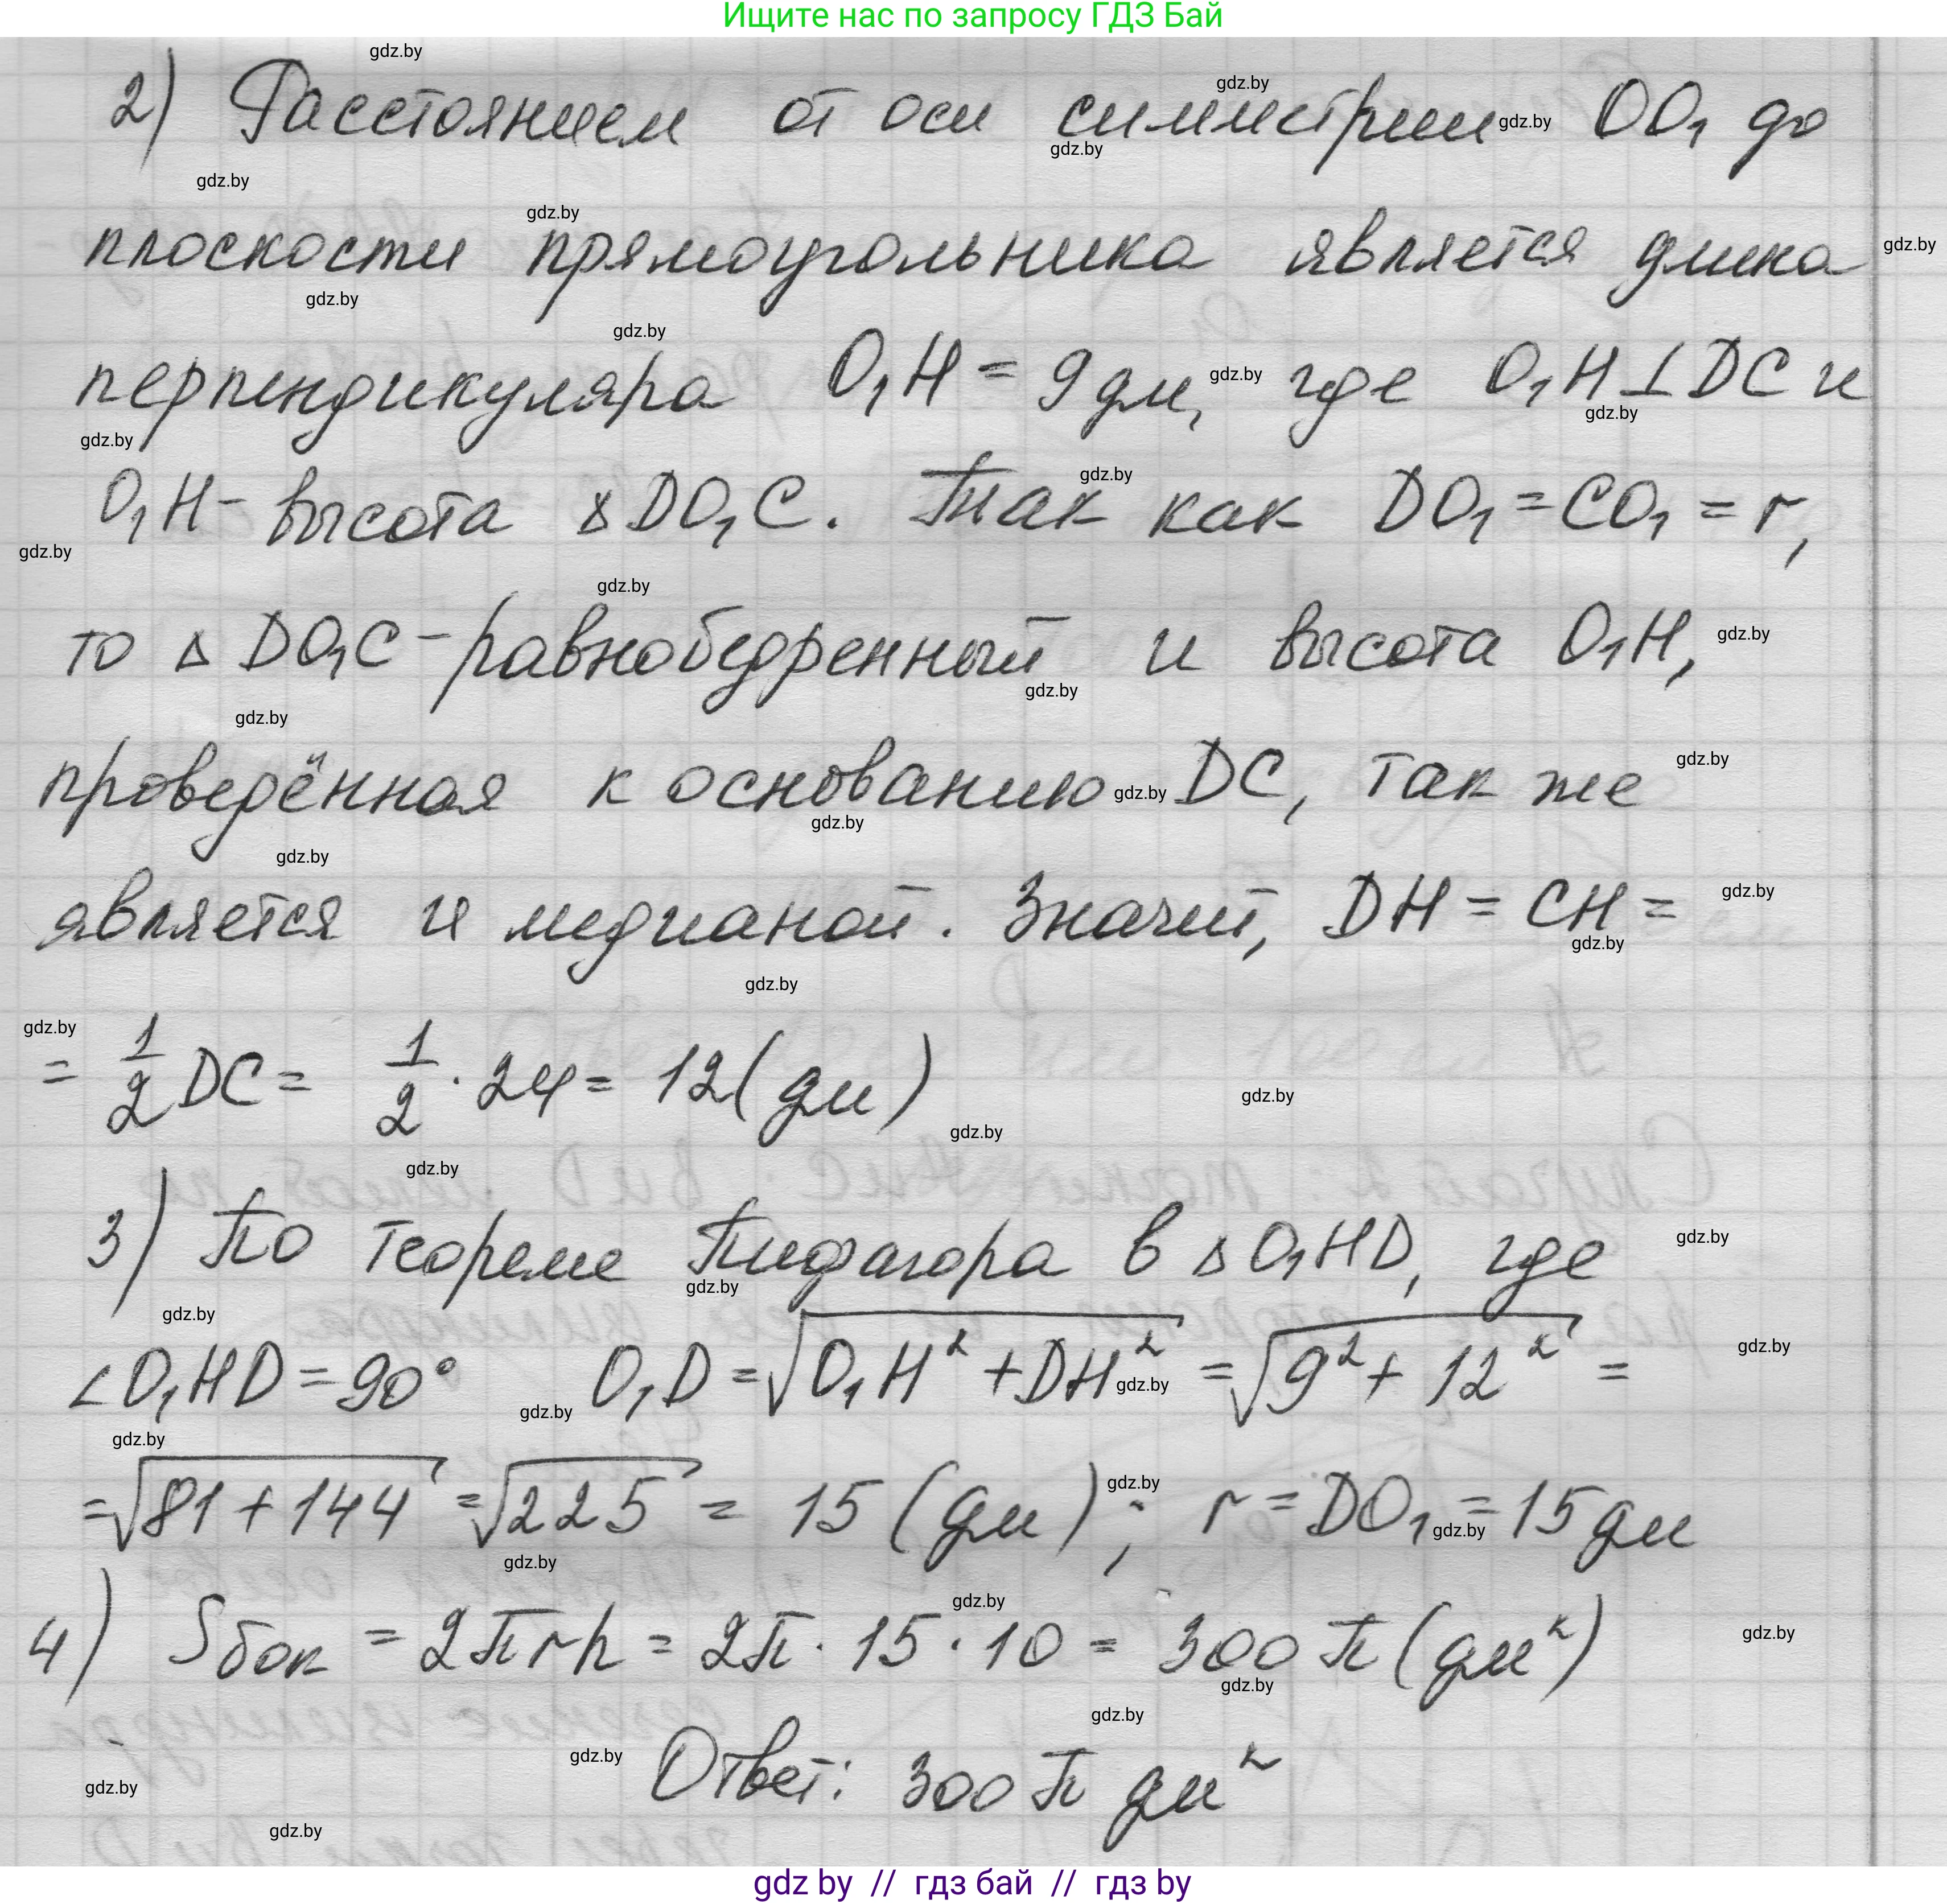 Ищите нас по запросу ГДЗ Бай
gdz.by
2) Расстоянием от оси симметрии OO₁ до
плоскости прямоугольника является длина
перпендикуляра O₁H = 9 дм, где O₁H ⊥ DC и
O₁H - высота △DO₁C. Так как DO₁ = CO₁ = r,
то △ DO₁C - равнобедренный и высота O₁H,
проведённая к основанию DC, так же
является и медианой. Значит, DH = CH =
= 1/2 DC = 1/2 · 24 = 12 (дм)
3) По теореме Пифагора в △ O₁HD, где
∠O₁HD = 90° O₁D = √(O₁H² + DH²) = √(9² + 12²) =
= √(81 + 144) = √225 = 15 (дм); r = DO₁ = 15 дм
4) Sбок = 2πrh = 2π · 15 · 10 = 300 π (дм²)
Ответ: 300 π дм²
gdz by // гдз бай // гдз by